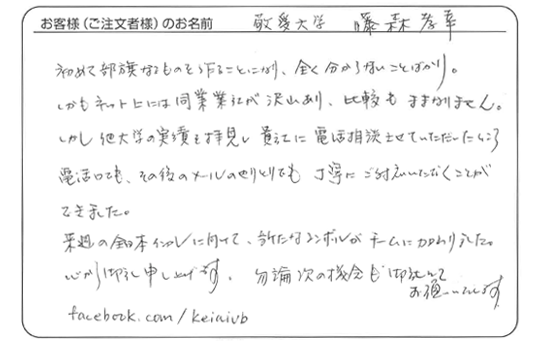 お客様（ご注文者様）のお名前 敬愛大学 藤森孝幸
初めて部旗なるものを作ることになり、全く分からないことばかり。
しかもネット上には同業業社が沢山あり、比較もままなりません。
しかし他大学の実績を拝見し貴社に電話相談させていただいたところ
電話口でも、その後のメールのやりとりでも丁寧にご対応いただくことが
できました。
来週の全日本インカレに向けて、新たなシンボルがチームに加わりました。
心から御礼申し上げます。勿論次の機会も御社にて
お願いいたします
facebook.com/keiaivb